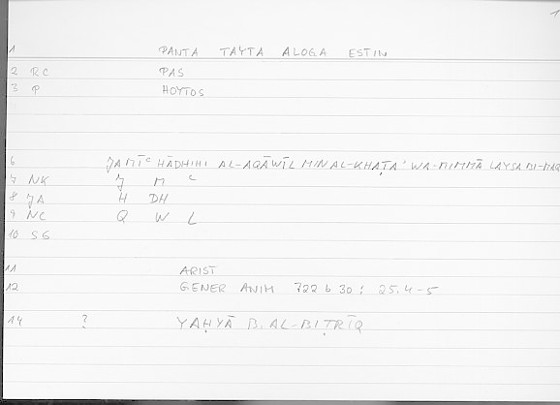 1
1 PANTA TAYTA ALOGA ESTIN
2 RC PAS
3 P HOYTOS
6 JAMĪʿ HĀDHIHI AL-AQĀWĪL MIN AL-KHAṬAʾ WA-MIMMĀ LAYSA BI-MAQ
7 NK J M ʿ
8 JA H DH
9 NC Q W L
10 SS
11 ARIST
12 GENER ANIM 722 b 30 : 25.4-5
14 ? YAḤYĀ B. AL-BIṬRĪQ